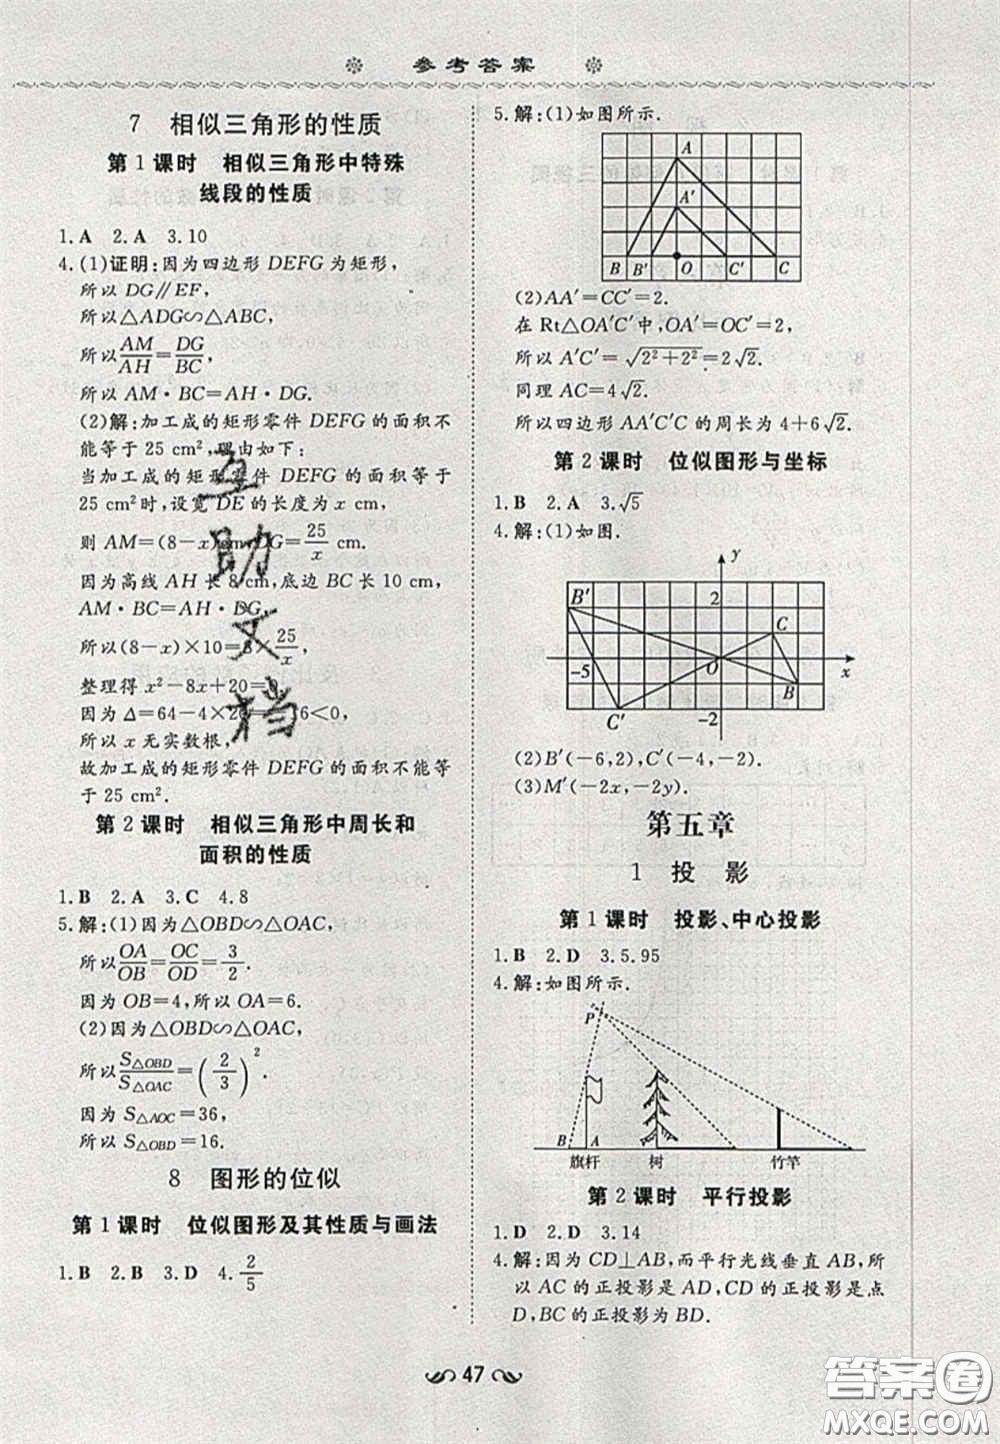 参考答案
7 相似三角形的性质
第1课时 相似三角形中特殊
线段的性质
1.A 2.A 3.10
4.(1)证明:因为四边形 DEFG 为矩形,
所以 DG∥EF,
所以△ADG∽△ABC,
所以AM/AH=DG/BC,
所以 AM·BC=AH·DG.
(2)解:加工成的矩形零件 DEFG 的面积不
能等于 25 cm²,理由如下:
当加工成的矩形零件 DEFG 的面积等于
25 cm²时,设宽 DE 的长度为 x cm,
则 AM=(8-x)cm,DG=25/x cm.
因为高线 AH 长 8 cm,底边 BC 长 10 cm,
AM·BC=AH·DG,
所以(8-x)×10=8×25/x,
整理得 x²-8x+20=0.
因为 Δ=64-4×20=-16<0,
所以 x 无实数根,
故加工成的矩形零件 DEFG 的面积不能等
于 25 cm².
第2课时 相似三角形中周长和
面积的性质
1.B 2.A 3.C 4.8
5.解:(1)因为△OBD∽△OAC,
所以OA/OB=OC/OD=3/2.
因为 OB=4,所以 OA=6.
(2)因为△OBD∽△OAC,
所以S△OBD/S△OAC=(2/3)².
因为 S△AOC=36,
所以 S△OBD=16.
8 图形的位似
第1课时 位似图形及其性质与画法
1.B 2.B 3.D 4.2/5
5.解:(1)如图所示.
A
A′
B B′ O C′ C
(2)AA′=CC′=2.
在 Rt△OA′C′中,OA′=OC′=2,
所以 A′C′=√(2²+2²)=2√2.
同理 AC=4√2.
所以四边形 AA′C′C 的周长为 4+6√2.
第2课时 位似图形与坐标
1.B 2.A 3.√5
4.解:(1)如图.
y
B′ 2
C
-5 O x
B
C′ -2
(2)B′(-6,2),C′(-4,-2).
(3)M′(-2x,-2y).
第五章
1 投影
第1课时 投影、中心投影
1.B 2.D 3.5.95
4.解:如图所示.
P
B A
旗杆 树 竹竿
第2课时 平行投影
1.D 2.D 3.14
4.解:因为 CD⊥AB,而平行光线垂直 AB,所
以 AC 的正投影是 AD,CD 的正投影是点
D,BC 的正投影为 BD.
47
互助文档
答案圈
MXQE.COM